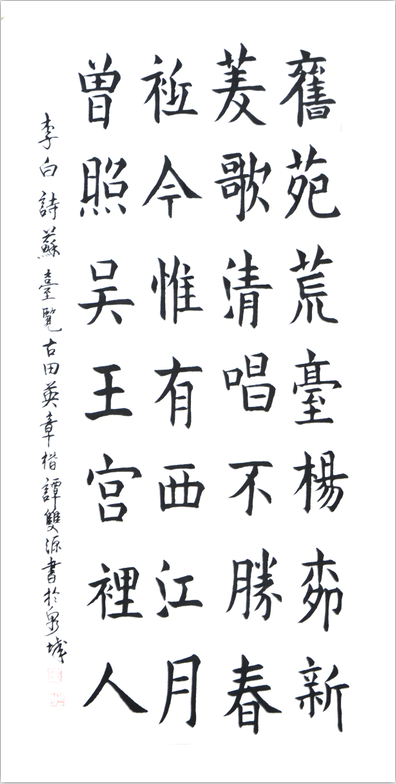 舊苑荒臺楊柳新
菱歌清唱不勝春
祗今惟有西江月
曾照吴王宫裡人
李白詩蘇臺覽古田英章楷譚雙源書於泉城